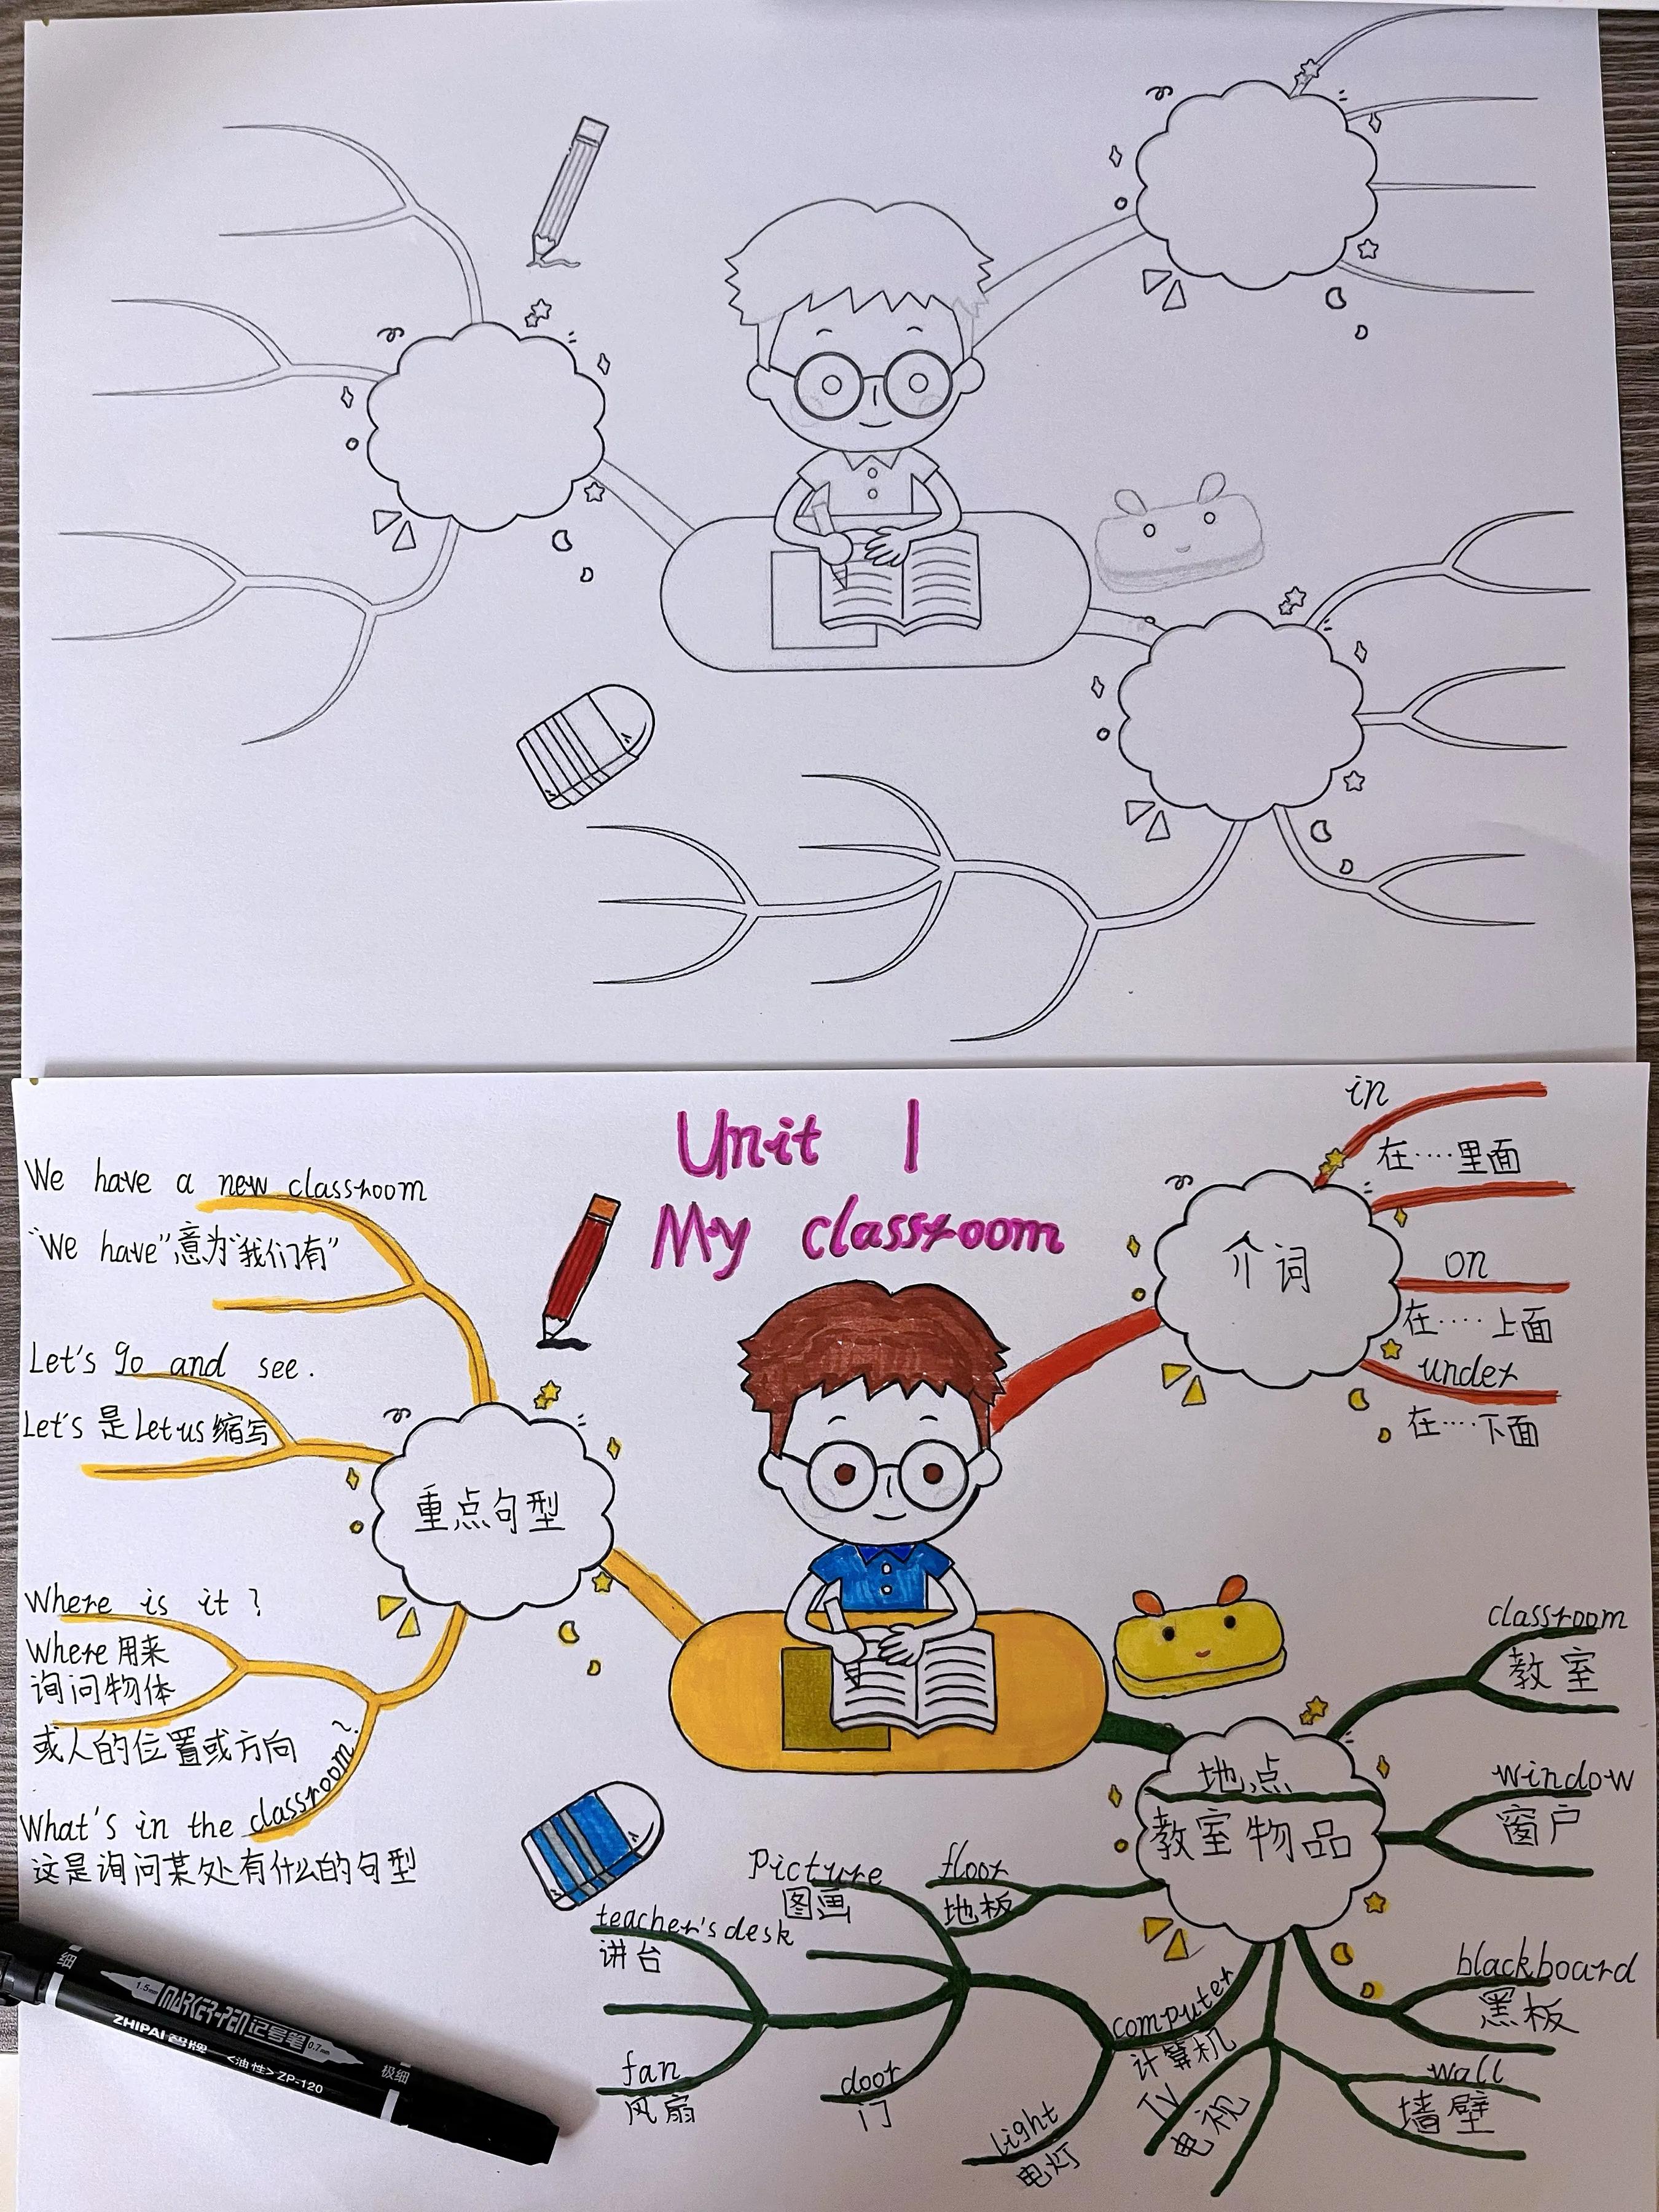 Unit 1
My classroom
We have a new classroom
"We have"意为"我们有"
Let's go and see.
Let's 是Let us 缩写
重点句型
Where is it?
Where 用来
询问物体
或人的位置或方向
What's in the classroom?
这是询问某处有什么的句型
in
在····里面
介词
on
在····上面
under
在····下面
classroom
教室
地点
教室物品
window
窗户
blackboard
黑板
wall
墙壁
TV
电视
computer
计算机
light
电灯
floor
地板
Picture
图画
teacher's desk
讲台
door
门
fan
风扇
细
1.5mm
MARKER-PEN 记号笔
0.7mm
极细
ZHIPAI 智牌 <油性> ZP-120